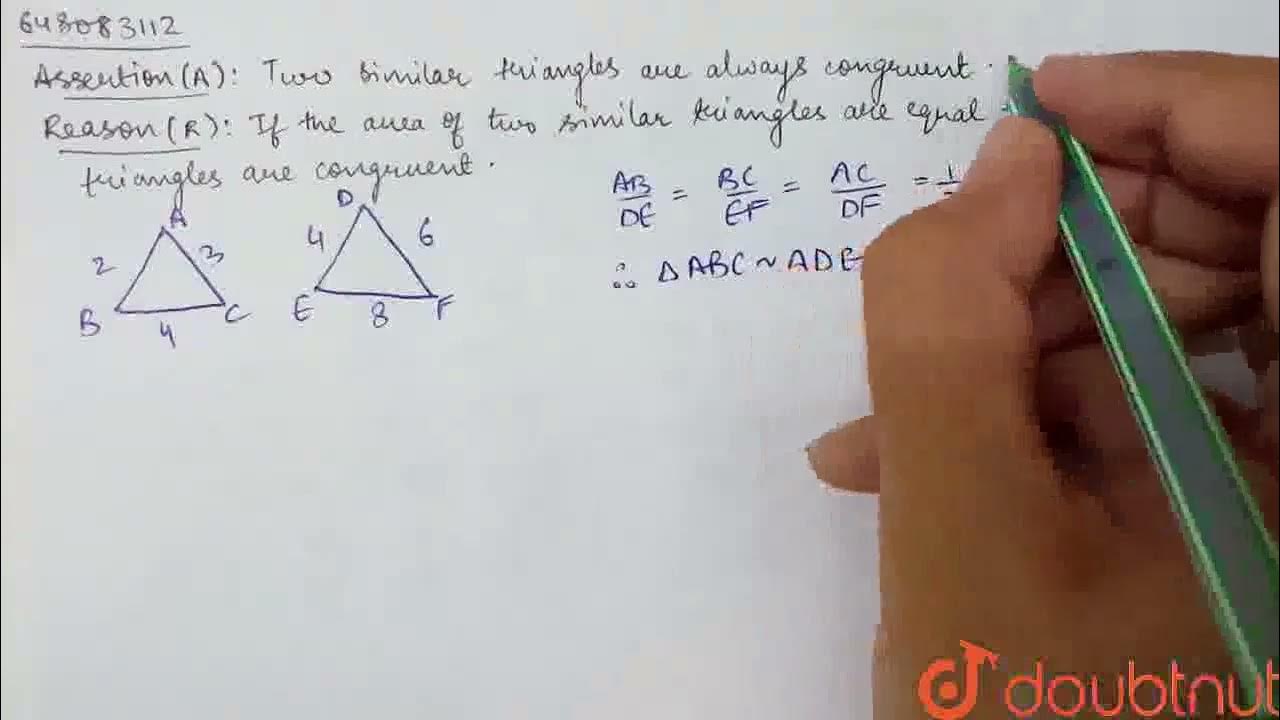 648083112
Assertion (A): Two similar triangles are always congruent.
Reason (R): If the area of two similar triangles are equal
triangles are congruent.
AB/DE = BC/EF = AC/DF = 1
∴ ΔABC ~ ADE
A
2 3
B 4 C
D
4 6
E 8 F
doubtnut